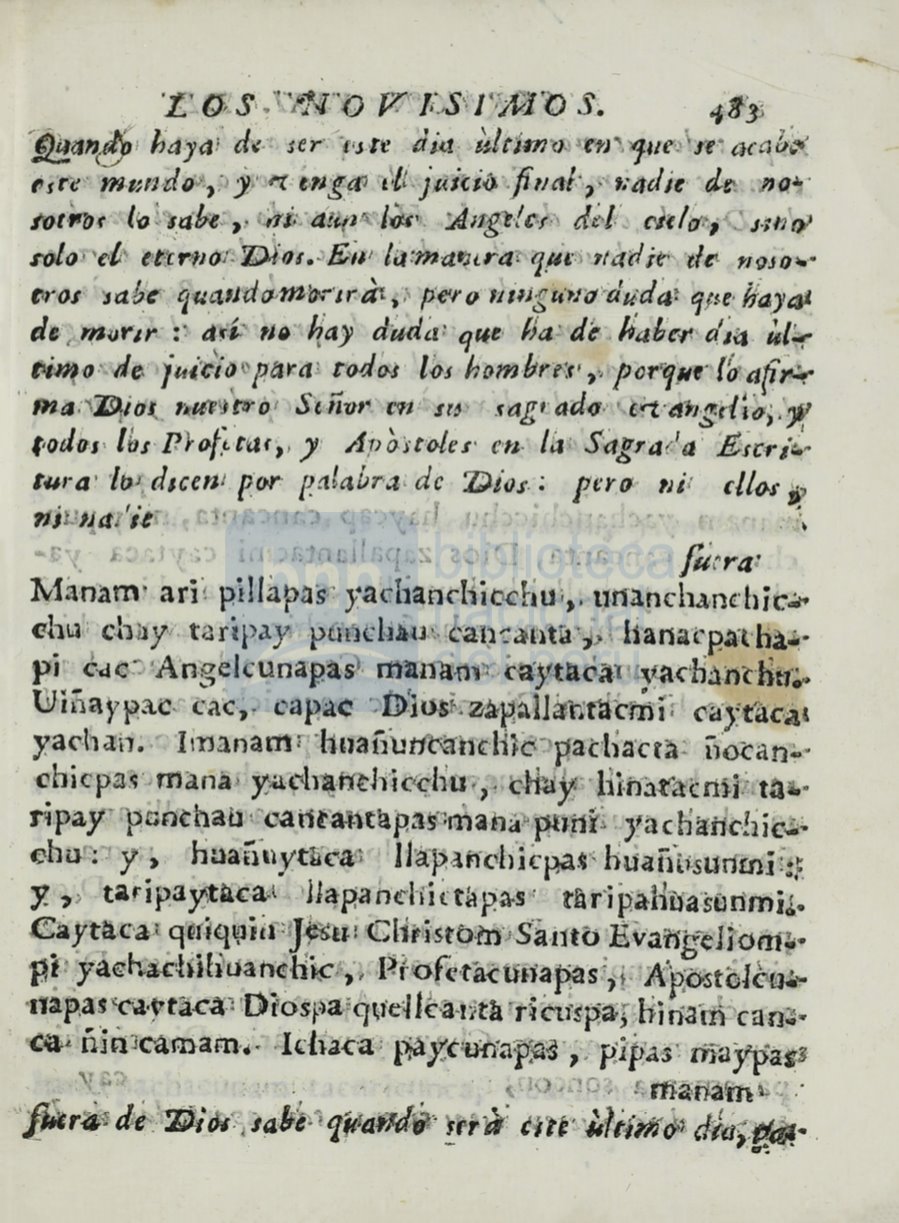 LOS NOVISIMOS. 483
Quando haya de ser este dia ùltimo en que se acabe
este mundo, y venga el juicio final, nadie de no-
sotros lo sabe, ni aun los Angeles del cielo, sino
solo el eterno Dios. En la manera que nadie de noso-
tros sabe quando morirà, pero ninguno duda que haya
de morir: así no hay duda que ha de haber dia ùl-
timo de juicio para todos los hombres, porque lo afir-
ma Dios nuestro Señor en su sagrado evangelio, y
todos los Profetas, y Apòstoles en la Sagrada Escri-
tura lo dicen por palabra de Dios: pero ni ellos,
ni nadie
fuera
Manam ari pillapas yachanchicchu, unanchanchic-
chu chay taripay punchau cancanta, hanacpacha-
pi cac Angelcunapas manam caytaca yachanchu.
Uiñaypac cac, capac Dios zapallantacmi caytaca
yachan. Imanam huañuncanchic pachacta ñocan-
chicpas mana yachanchicchu, chay hinatacmi ta-
ripay punchau cancantapas mana puni yachanchic-
chu: y, huañuytaca llapanchicpas huañusunmi:
y, taripaytaca llapanchictapas taripahuasunmi.
Caytaca quiquin Jesu Christom Santo Evangeliom-
pi yachachihuanchic, Profetacunapas, Apostolcu-
napas caytaca Diospa quellcanta ricuspa, hinam can-
ca ñin camam. Ichaca paycunapas, pipas maypas
manam
fuera de Dios sabe quando serà este ùltimo dia,
biblioteca